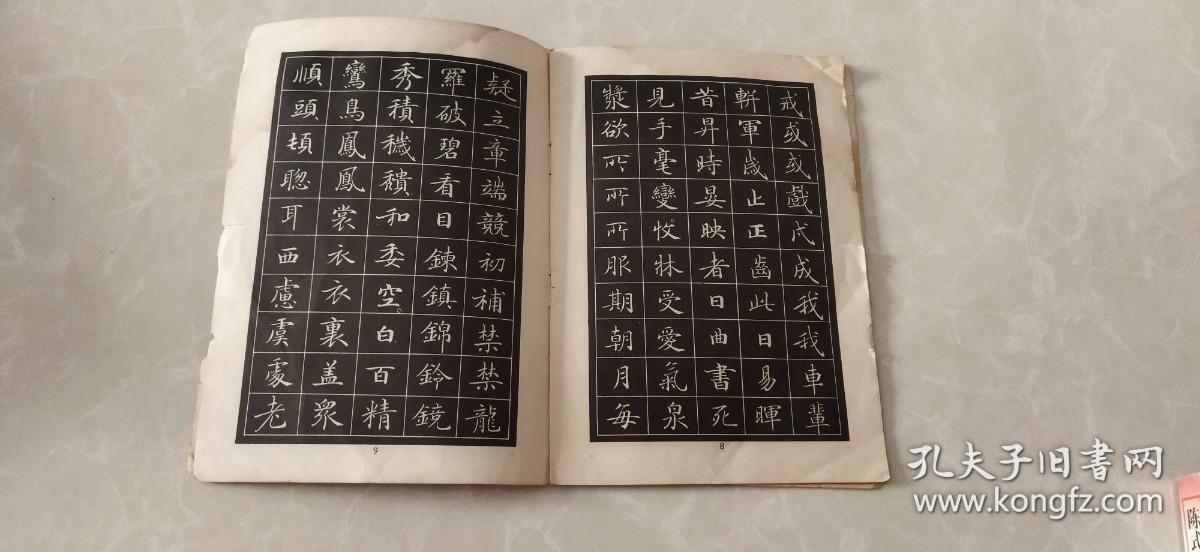 戒或或戲戌成我我車輩
輧軍歲止正齒此日易暉
昔昇時晏映者日曲書死
見手毫變牧牀受愛氣泉
漿欲所所所服期朝月每
8
疑立章端競初補禁禁龍
羅破碧看目鍊鎮錦鈴鏡
秀積穢穨和委空白百精
鸞鳥鳳鳳裳衣衣裏盖眾
順頭頓聰耳西慮虞處老
9
孔夫子旧書网
www.kongfz.com
陈